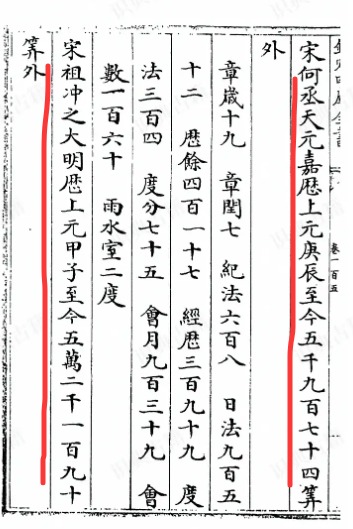 卷一百五
宋何丞天元嘉厯上元庚辰至今五千九百七十四筭
外
章歳十九 章閏七 紀法六百八 日法九百五
十二 厯餘四百一十七 經厯三百九十九 度
法三百四 度分七十五 會月九百三十九 會
數一百六十 雨水室二度
宋祖冲之大明厯上元甲子至今五萬二千一百九十
筭外